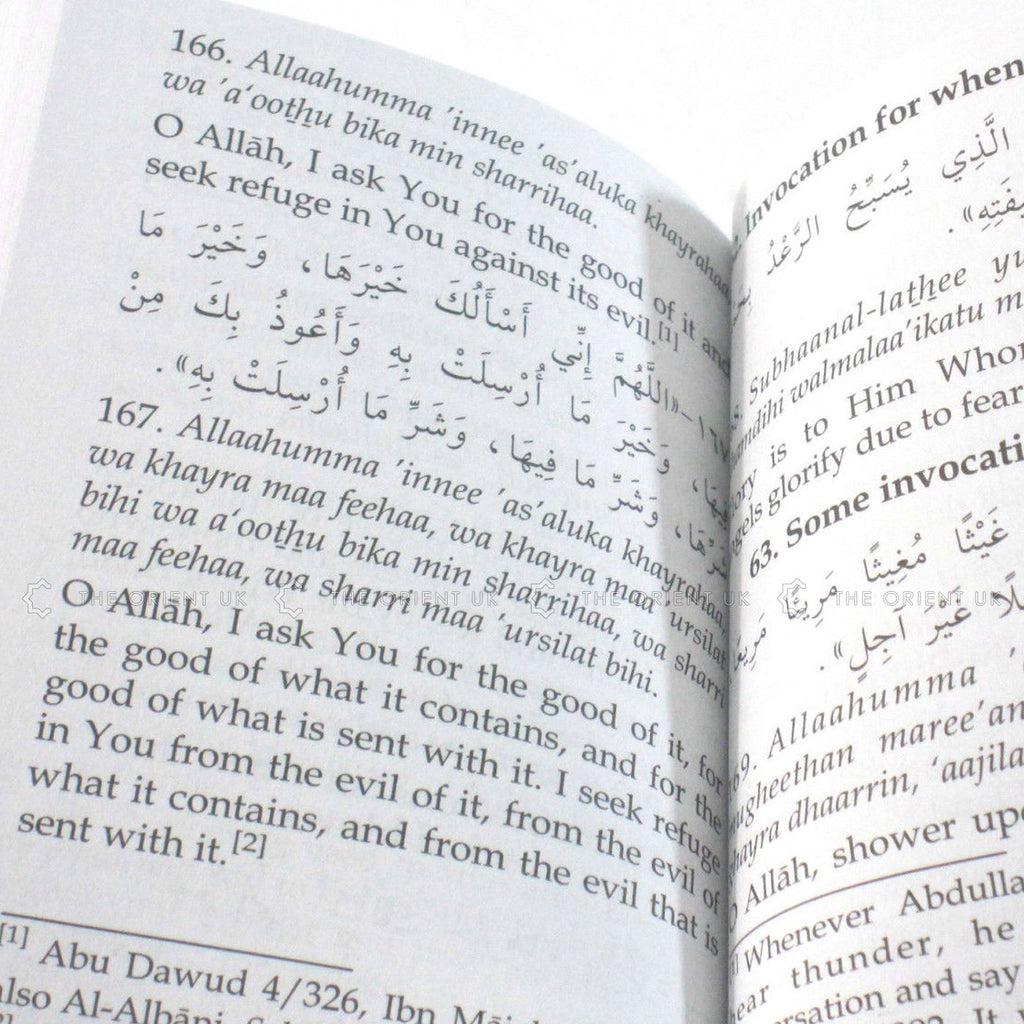 166. Allaahumma 'innee 'as'aluka khayrahaa
wa 'a‘ooṯẖu bika min sharrihaa.
O Allāh, I ask You for the good of it and
seek refuge in You against its evil.[1]
١٦٧-«اللَّهُمَّ إِنِّي أَسْأَلُكَ خَيْرَهَا، وَخَيْرَ مَا
فِيهَا، وَخَيْرَ مَا أُرْسِلَتْ بِهِ وَأَعُوذُ بِكَ مِنْ
شَرِّهَا، وَشَرِّ مَا فِيهَا، وَشَرِّ مَا أُرْسِلَتْ بِهِ».
167. Allaahumma 'innee 'as'aluka khayrahaa,
wa khayra maa feehaa, wa khayra maa 'ursilat
bihi wa a‘ooṯẖu bika min sharrihaa, wa sharri
maa feehaa, wa sharri maa 'ursilat bihi.
O Allāh, I ask You for the good of it, for
the good of what it contains, and for the
good of what is sent with it. I seek refuge
in You from the evil of it, from the evil of
what it contains, and from the evil that is
sent with it.[2]
[1] Abu Dawud 4/326, Ibn
also Al-Albāni,
Invocation for when
الَّذِي يُسَبِّحُ الرَّعْدُ
Subhaanal-laṯẖee
walmalaa'ikatu
is to Him Whom
glorify due to fear
63. Some
غَيْثًا مُغِيثًا مَرِيئًا
غَيْرَ آجِلٍ».
Allaahumma
mugheethan maree'an
dhaarrin, ‘aajila
Allāh, shower
Whenever
thunder, he
and say
THE ORIENT UK
THE ORIENT UK
THE ORIENT UK
THE ORIENT UK